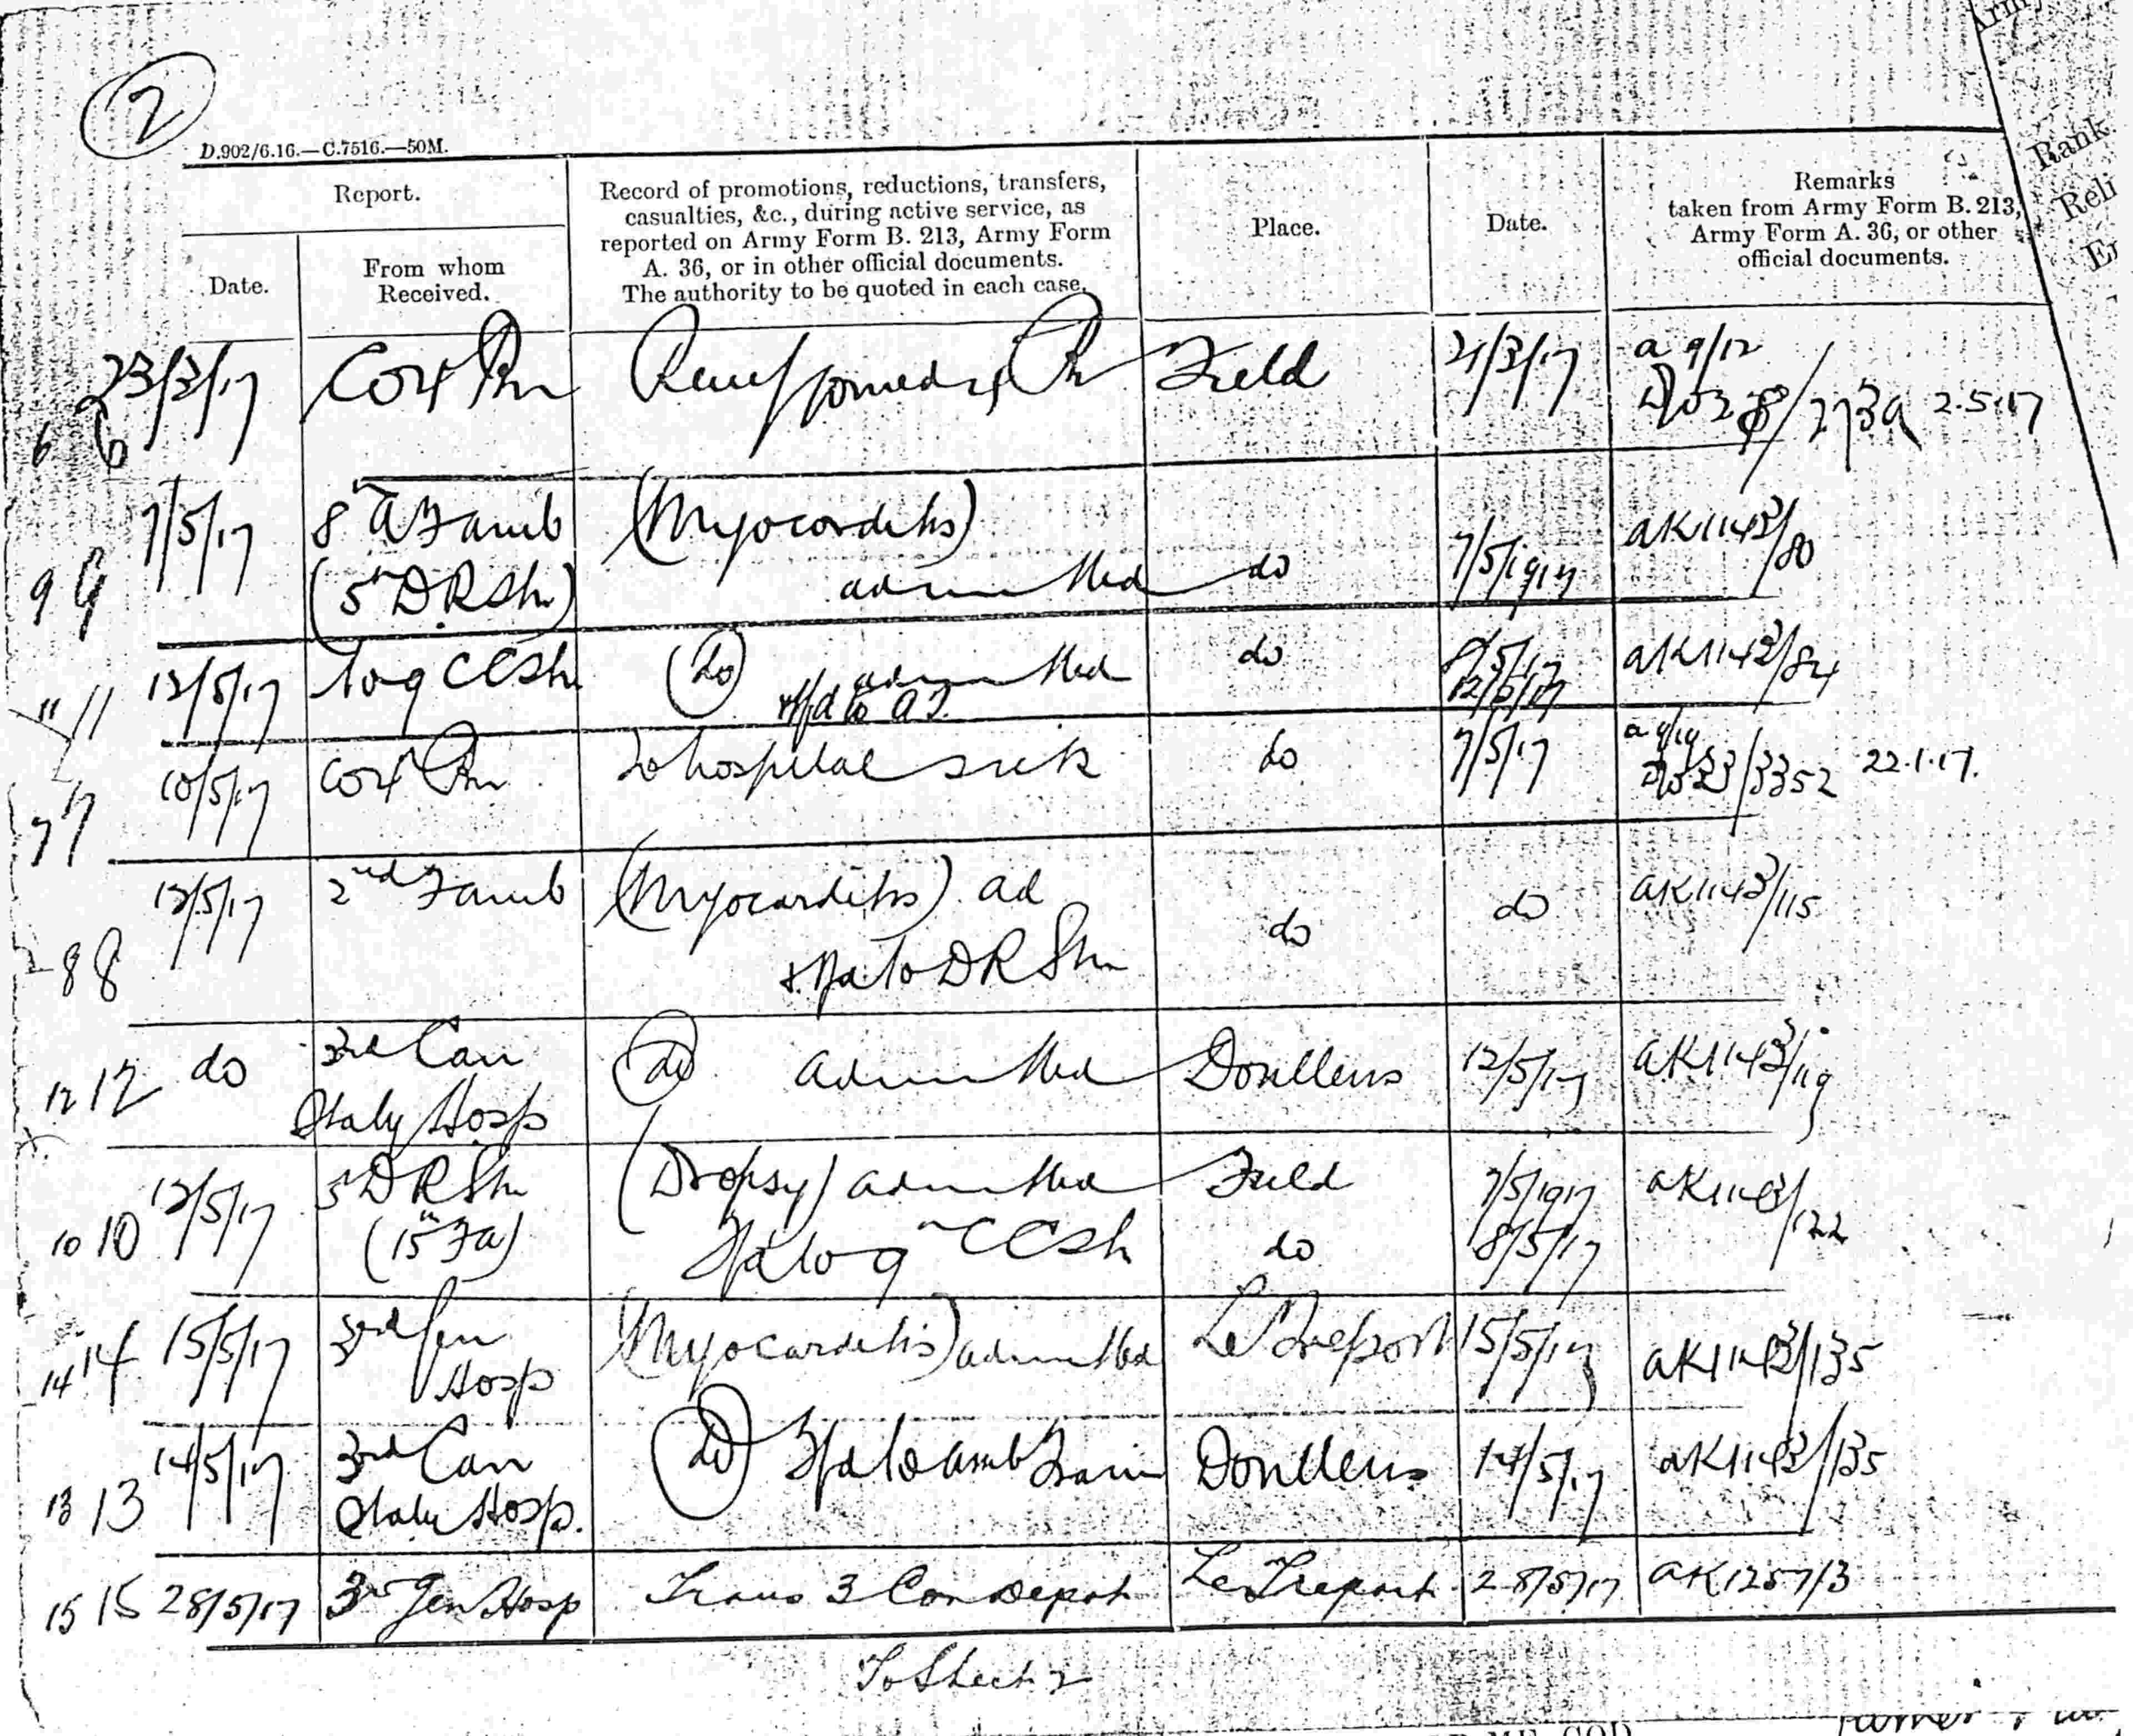 2
D.902/6.16.—C.7516.—50M.
Report.
Date.
From whom
Received.
Record of promotions, reductions, transfers,
casualties, &c., during active service, as
reported on Army Form B. 213, Army Form
A. 36, or in other official documents.
The authority to be quoted in each case.
Place.
Date.
Remarks
taken from Army Form B. 213,
Army Form A. 36, or other
official documents.
Rank
Reli
6 6 23/3/17 Field 21/3/17 2.5.17
9 9 7/5/17 8 Famb (Myocarditis)
(5 DRStn) admitted do 7/5/1917 AK1143/80
11 11 12/5/17 CCStn (do) admitted do 8/5/17 AK1143/84
12/5/17
7 7 10/5/17 To hospital sick do 7/5/17 3352 22.1.17.
8 8 12/5/17 2nd Famb (Myocarditis) ad do do AK1143/115
to DRStn
12 12 do 3rd Can (do) admitted Doullens 12/5/17 AK1143/119
Staty Hosp
10 10 12/5/17 5 DRStn (Dropsy) admitted Field 7/5/1917 AK1143/122
(15 Fa) to 9 CCStn do 8/5/17
14 14 15/5/17 3rd Gen (Myocarditis) admitted Le Treport 15/5/17 AK1143/135
Hosp
13 13 14/5/17 3rd Can (do) Tfd to amb Train Doullens 14/5/17 AK1143/135
Staty Hosp.
15 15 28/5/17 3rd Gen Hosp Trans 3 Con Depot Le Treport 28/5/17 AK1257/3
To Sheet 2